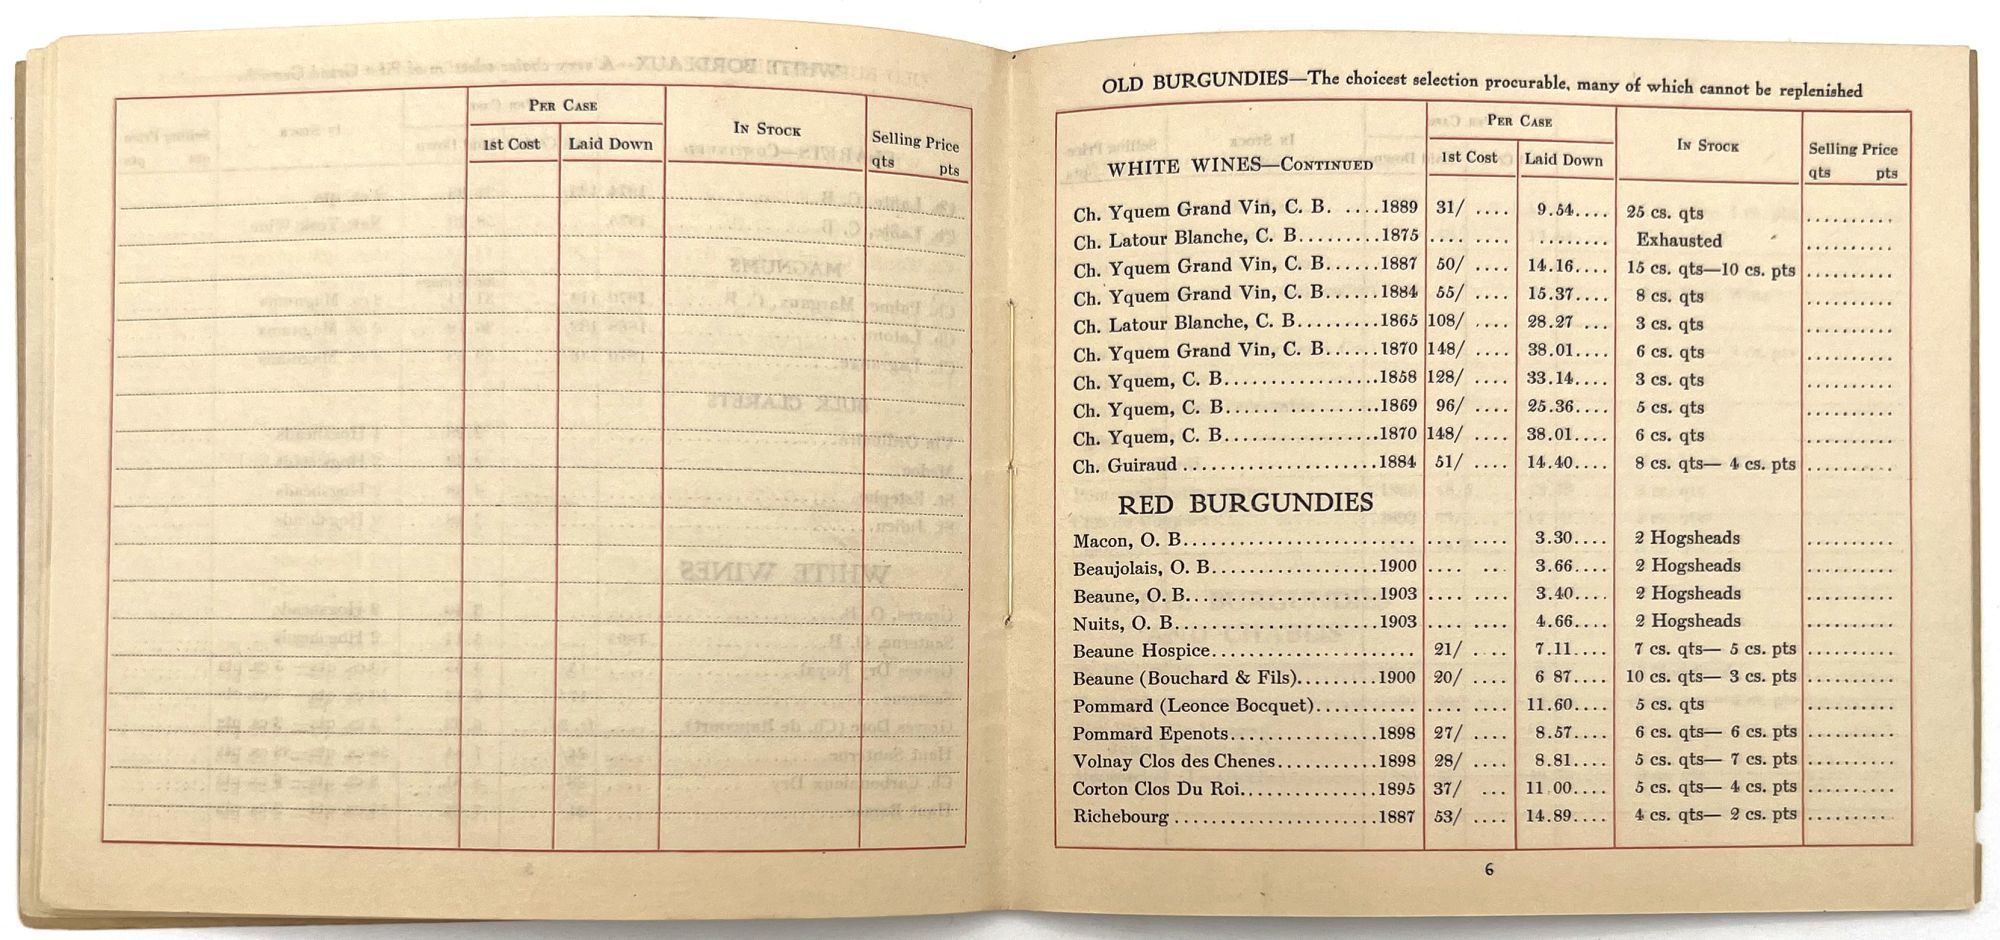 PER CASE
1st Cost Laid Down
IN STOCK
Selling Price
qts pts
OLD BURGUNDIES—The choicest selection procurable, many of which cannot be replenished
WHITE WINES—CONTINUED
PER CASE
1st Cost Laid Down
IN STOCK
Selling Price
qts pts
Ch. Yquem Grand Vin, C. B. ....1889 31/ .... 9.54.... 25 cs. qts ..........
Ch. Latour Blanche, C. B.........1875 .... .... ........ Exhausted ..........
Ch. Yquem Grand Vin, C. B......1887 50/ .... 14.16.... 15 cs. qts—10 cs. pts ..........
Ch. Yquem Grand Vin, C. B......1884 55/ .... 15.37.... 8 cs. qts ..........
Ch. Latour Blanche, C. B.........1865 108/ .... 28.27 ... 3 cs. qts ..........
Ch. Yquem Grand Vin, C. B......1870 148/ .... 38.01.... 6 cs. qts ..........
Ch. Yquem, C. B.................1858 128/ .... 33.14.... 3 cs. qts ..........
Ch. Yquem, C. B.................1869 96/ .... 25.36.... 5 cs. qts ..........
Ch. Yquem, C. B.................1870 148/ .... 38.01.... 6 cs. qts ..........
Ch. Guiraud .....................1884 51/ .... 14.40.... 8 cs. qts— 4 cs. pts ..........
RED BURGUNDIES
Macon, O. B......................... .... .... 3.30.... 2 Hogsheads ..........
Beaujolais, O. B..................1900 .... .. 3.66.... 2 Hogsheads ..........
Beaune, O. B.....................1903 .... .... 3.40.... 2 Hogsheads ..........
Nuits, O. B......................1903 .... .... 4.66.... 2 Hogsheads ..........
Beaune Hospice...................... 21/ .... 7.11.... 7 cs. qts— 5 cs. pts ..........
Beaune (Bouchard & Fils).........1900 20/ .... 6 87.... 10 cs. qts— 3 cs. pts ..........
Pommard (Leonce Bocquet)........... .... .... 11.60.... 5 cs. qts ..........
Pommard Epenots.................1898 27/ .... 8.57.... 6 cs. qts— 6 cs. pts ..........
Volnay Clos des Chenes...........1898 28/ .... 8.81.... 5 cs. qts— 7 cs. pts ..........
Corton Clos Du Roi...............1895 37/ ... 11 00.... 5 cs. qts— 4 cs. pts ..........
Richebourg ......................1887 53/ .... 14.89.... 4 cs. qts— 2 cs. pts ..........
6